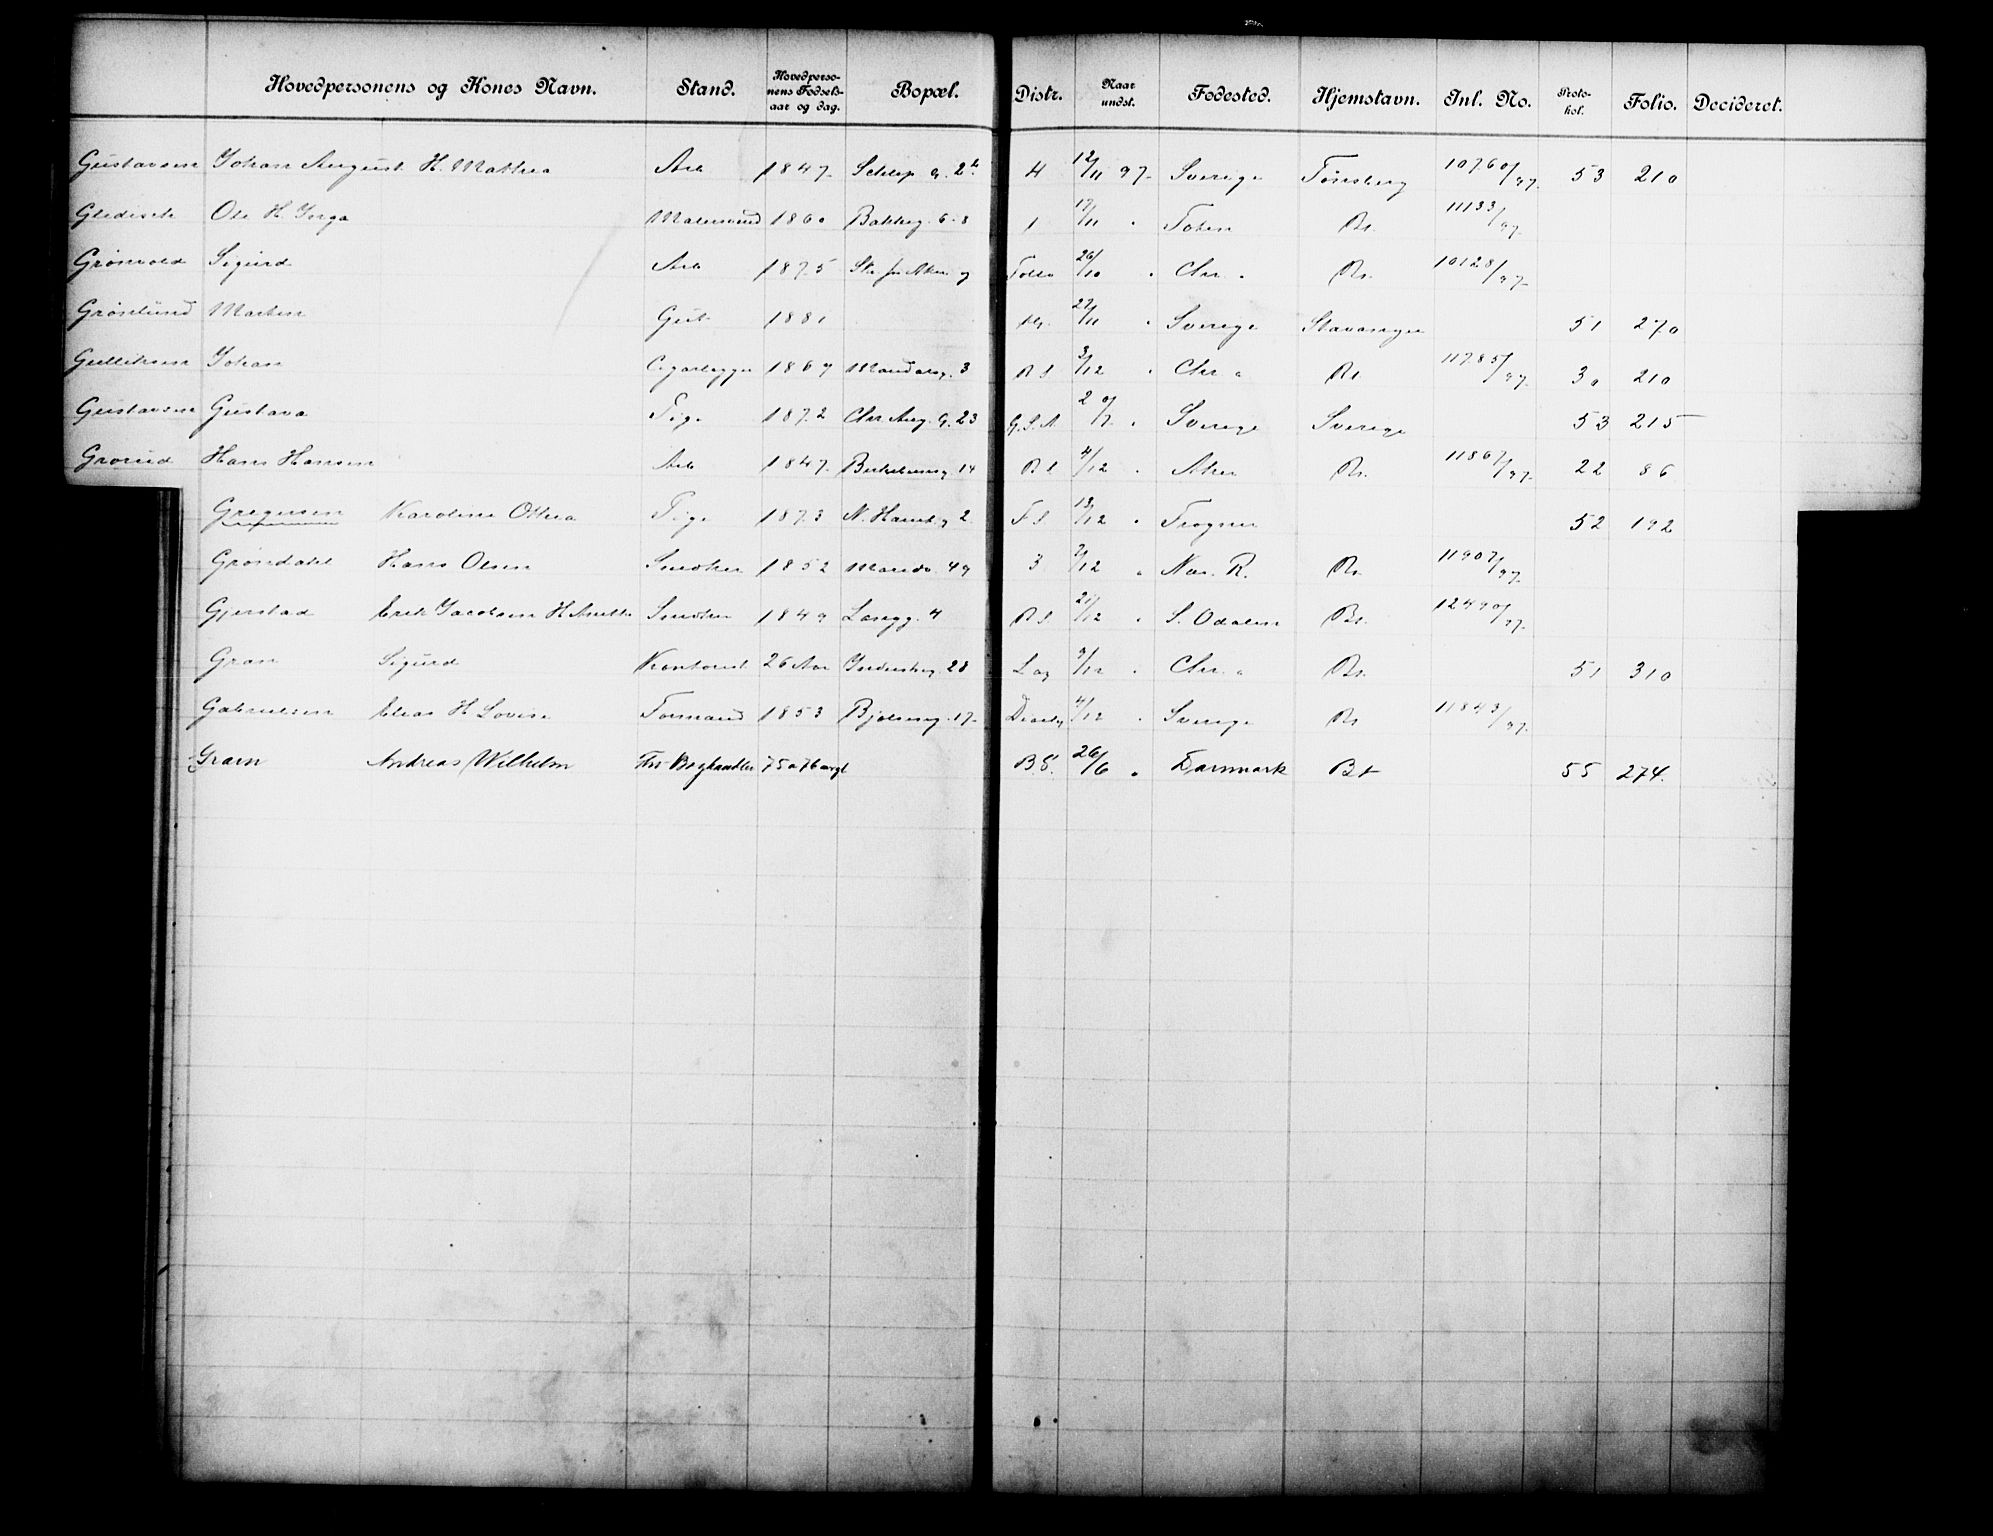 Hovedpersonens og Kones Navn. Stand. Hovedperso-nens Fødsels-aar og dag. Bopæl. Distr. Naar undst. Fødested. Hjemstavn. Inl. No. Proto-kol. Folio. Decideret.
Gustavsen Johan August H. Mathea Arb 1847 4 12/11 97 Sverige Tønsberg 10760/97 53 210
Ole H. Inga 1860 Bakkeg. 6-8 1 17/11 " Toten Br. 11133/97
Grønvold Sigurd Arb 1875 26/10 " Chr. a Br. 10128/97
Grønlund Martin Gut 1881 27/11 " Sverige Stavanger 51 270
Gulliksen Johan 1869 Mandalsg. 3 B S 3/12 " Chr a Br 11785/97 30 210
Gustavsen Gustava Pige 1872 Chr Aug. G. 23 G.S.A " Sverige Sverige 53 215
Grorud Hans Hansen Arb 1847 14 4/12 " Aker Br. 11867/97 22 86
Gregersen Karoline Othea Pige 1873 2 F S 13/12 " Trogner 52 192
Grøndahl Hans Olsen Snedker 1852 Maridv. 49 3 7/12 " Nes. R. Br. 11907/97
Gjerstad Erik Jacobsen H Anette Snedker 1849 Langg. 4 B S 21/12 " S. Odalen Br. 12490/97
Gran Sigurd Kontorist 26 Aar 28 9/12 " Chr. a Br. 51 310
Gabrielsen Elias H Lovise Formand 1853 Bjølseng. 17 4/12 " Sverige Br 11843/97
Gram Andreas Wilhelm Boghandler 75 a 76 B.S. 26/6 " Danmark Bt 55 274.